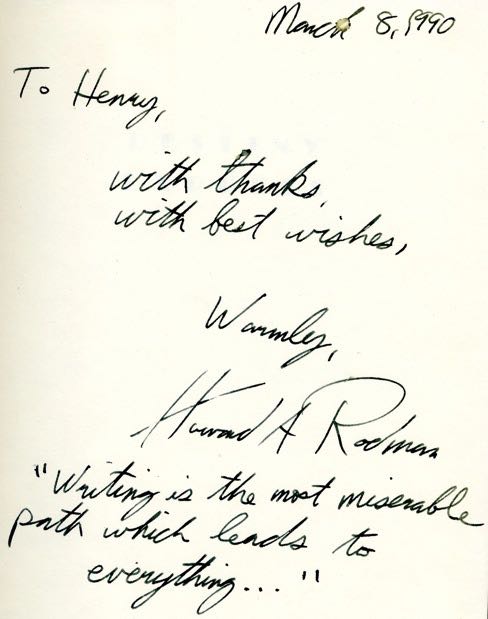 March 8, 1990
To Henry,
with thanks,
with best wishes,
Warmly,
Howard A Rodman
"Writing is the most miserable
path which leads to
everything..."